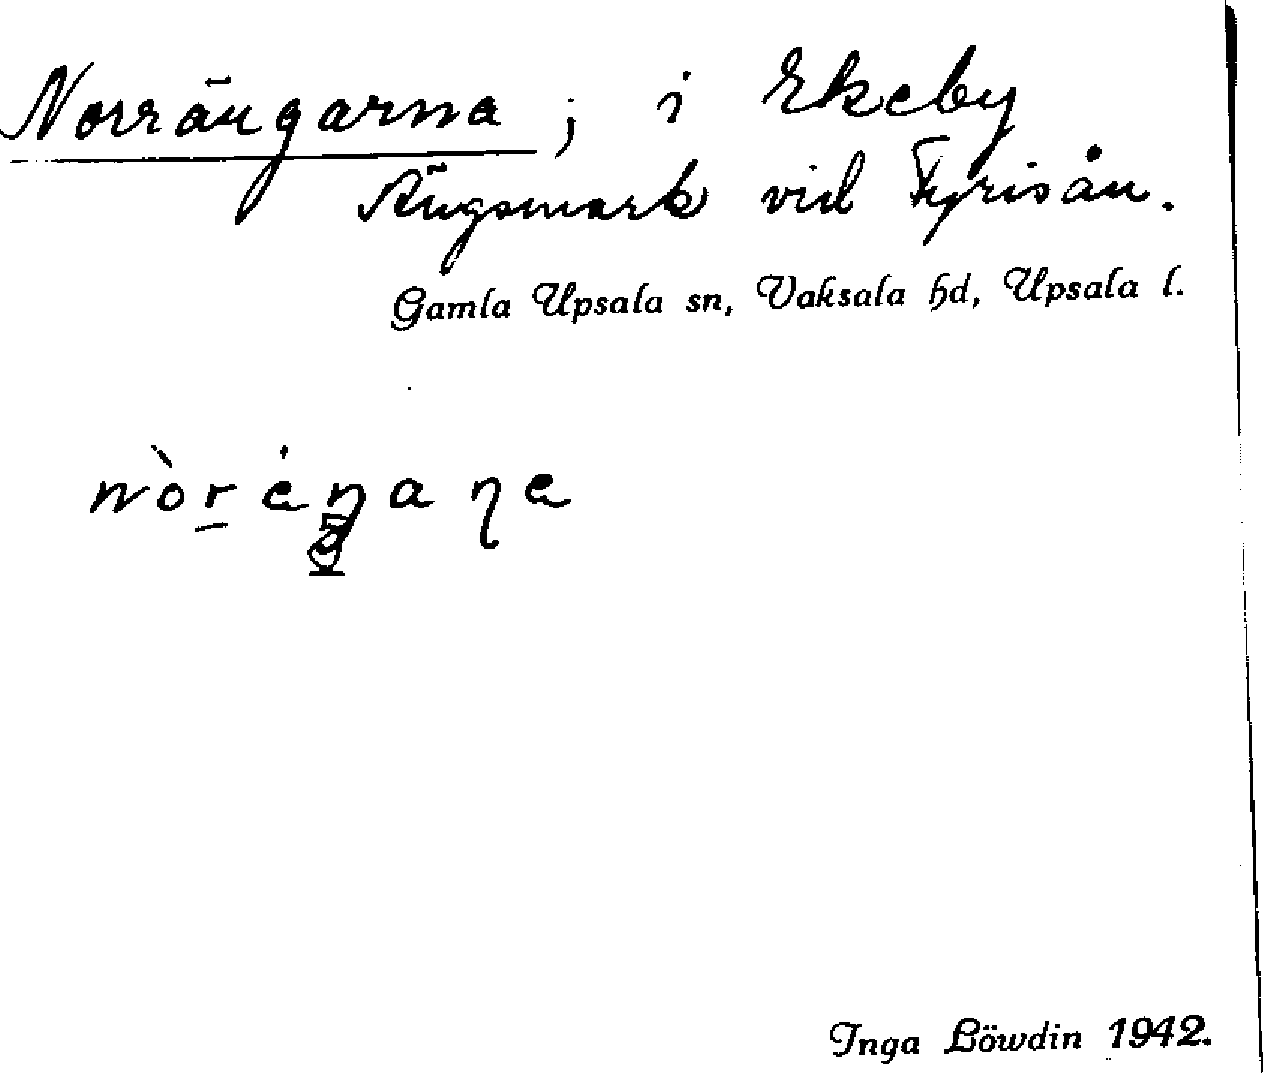 Norrängarna; i Ekeby
Ängsmark vid Fyrisån.
Gamla Upsala sn, Vaksala hd, Upsala l.
Inga Löwdin 1942.